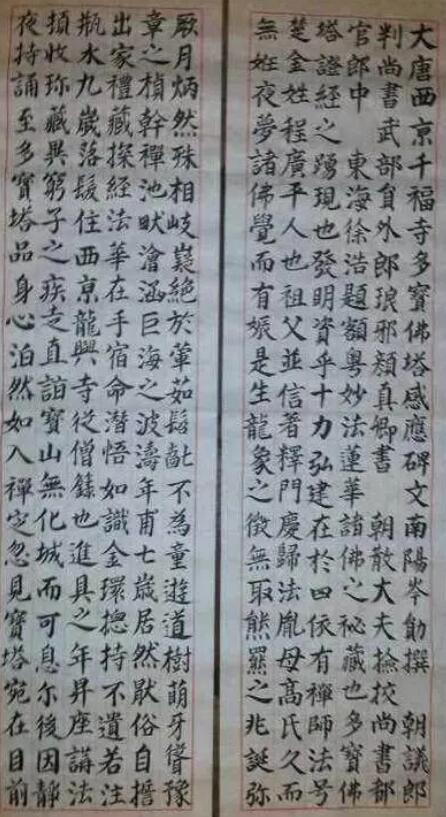 大唐西京千福寺多寶佛塔感應碑文南陽岑勛撰 朝議郎
判尚書武部員外郎琅邪顏真卿書 朝散大夫撿校尚書都
官郎中 東海徐浩題額粵妙法蓮華諸佛之秘藏也多寶佛
塔證經之踴現也發明資乎十力弘建在於四依有禪師法号
楚金姓程廣平人也祖父並信著釋門慶歸法胤母高氏久而
無妊夜夢諸佛覺而有娠是生龍象之徵無取熊羆之兆誕弥
厥月炳然殊相岐嶷絕於葷茹髫齔不為童遊道樹萌牙聳豫
章之楨幹禪池畎澮涵巨海之波濤年甫七歲居然厭俗自
出家禮藏探經法華在手宿命潛悟如識金環揔持不遺若注
瓶水九歲落髮住西京龍興寺從僧籙也進具之年昇座講法
頓收珎藏異窮子之疾走直詣寶山無化城而可息尔後因靜
夜持誦至多寶塔品身心泊然如入禪定忽見寶塔宛在目前